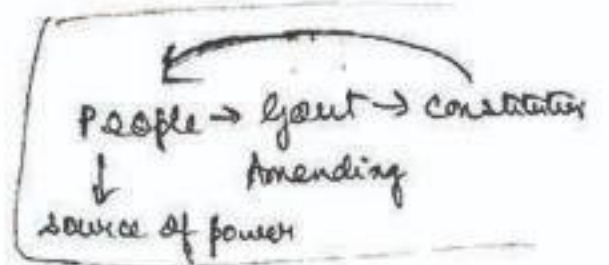 People → Govt → Constitution
Amending
↓
source of power